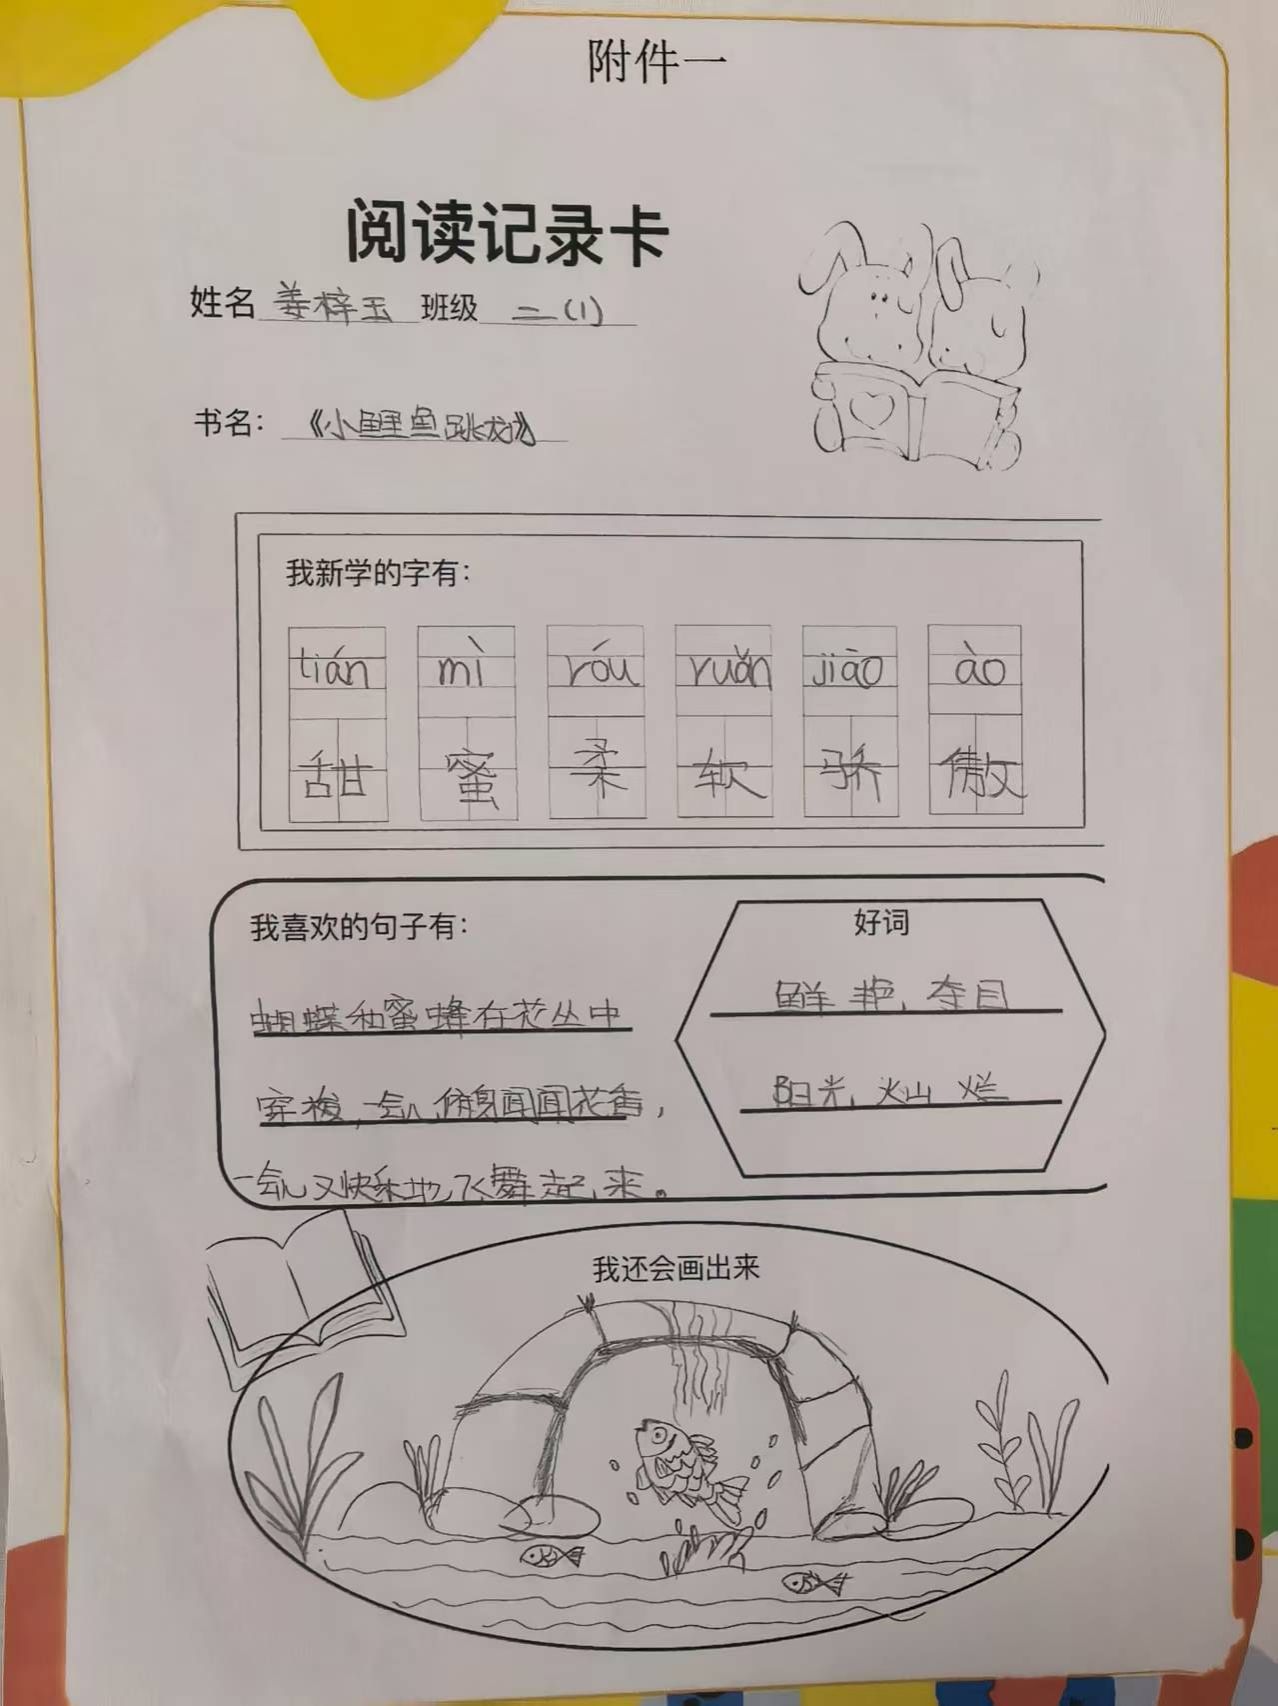 附件一
阅读记录卡
姓名 姜梓玉 班级 二(1)
书名： 《小鲤鱼跳龙》
我新学的字有：
tián mì róu ruǎn jiāo ào
甜 蜜 柔 软 骄 傲
我喜欢的句子有：
蝴蝶和蜜蜂在花丛中
穿梭，一会儿俯身闻闻花香，
一会儿又快乐地飞舞起来。
好词
鲜艳，夺目
阳光，灿烂
我还会画出来